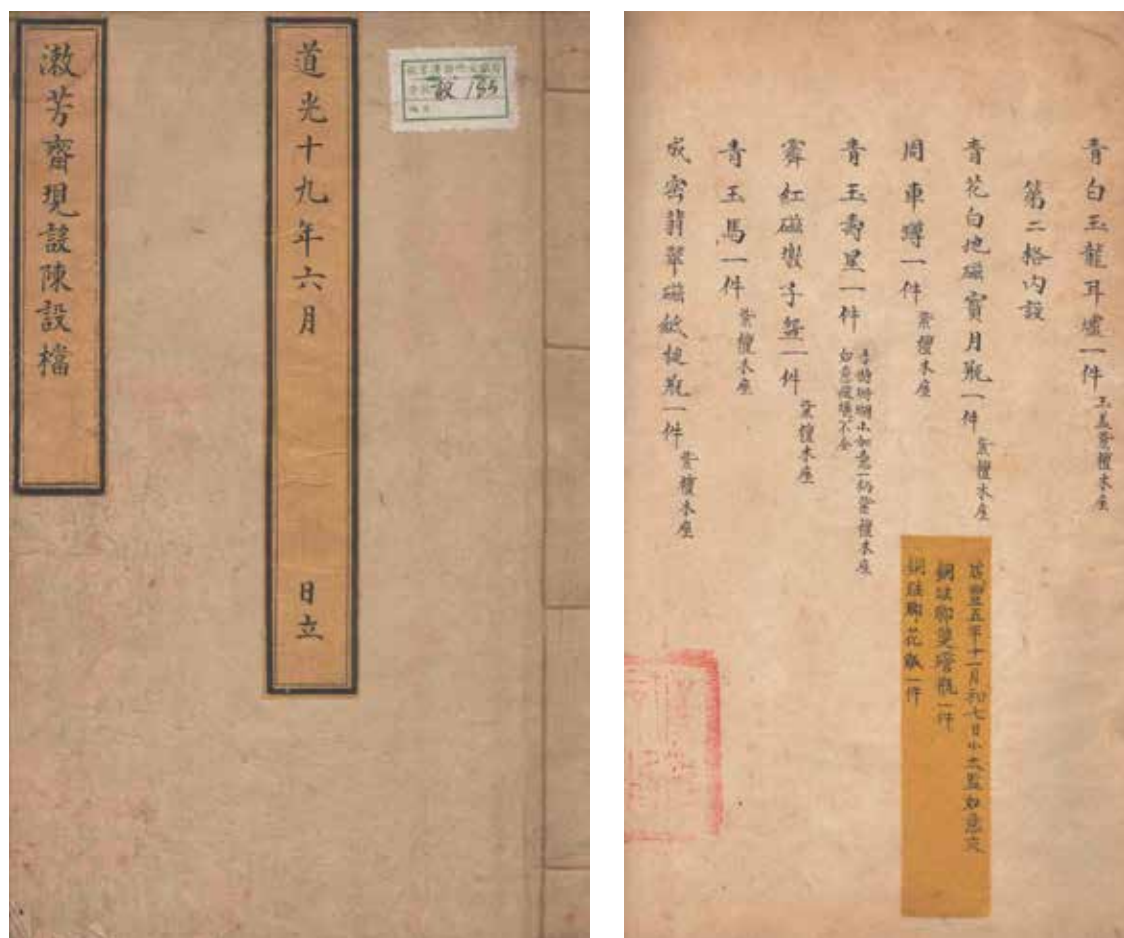 道光十九年六月 日立
漱芳齋現設陳設檔
設 195
青白玉龍耳罏一件 玉蓋紫檀木座
第二格內設
青花白地磁寶月瓶一件 紫檀木座
周車一件 紫檀木座
青玉壽星一件 手持珊瑚小如意一柄紫檀木座
如意磕壞不全
霽紅磁撇子盌一件 紫檀木座
青玉馬一件 紫檀木座
成窰翡翠磁紙槌瓶一件 紫檀木座
咸豐五年十一月初七日小太監如意交
銅琺瑯雙管瓶一件
銅琺瑯花觚一件